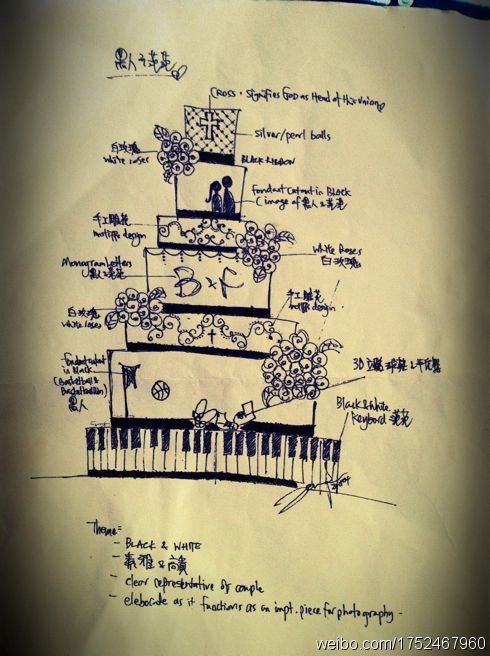 黑人 & 范范
CROSS - Signifies GOD as Head of this Union
silver/pearl balls
白玫瑰
white roses
BLACK RIBBON
Fondant cutout in Black
(image of 黑人 & 范范
手工雕花
motiffs design
white Roses
白玫瑰
Monogram Letters
黑人 & 范范
B & F
手工雕花
motiffs design
白玫瑰
white roses
Fondant cutout
in Black
(Basketball &
黑人
3D
Black & White
Keyboard 范范
Theme:
- BLACK & WHITE
- 素雅 &
- clear representative of couple
- elaborate as it functions as an impt. piece for photography -
weibo.com/1752467960